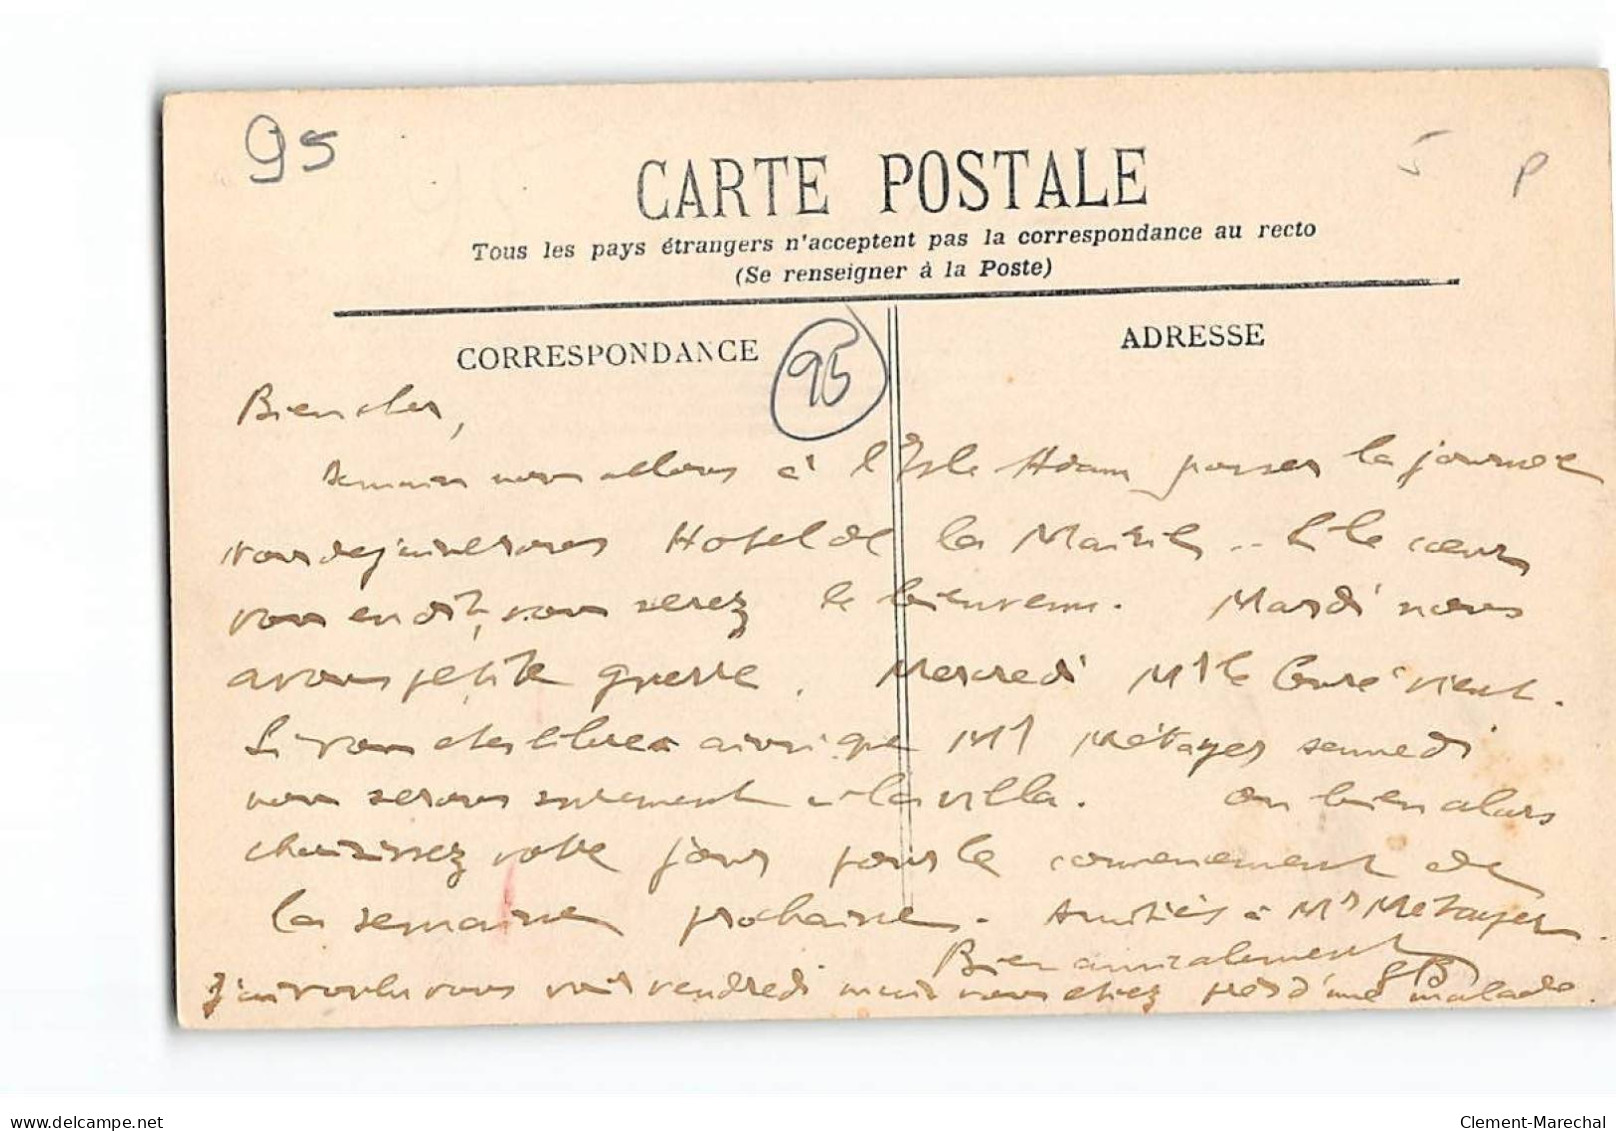 95
5
P
CARTE POSTALE
Tous les pays étrangers n'acceptent pas la correspondance au recto
(Se renseigner à la Poste)
CORRESPONDANCE
95
ADRESSE
Bien cher,
Demain nous allons à l'Isle Adam passer la journée
nous déjeunerons Hotel de la Mairie .. Si le cœur
vous en dit, vous serez le bienvenu. Mardi nous
avons petite guerre. Mercredi Mr le Curé vient.
Si vous etes libre ainsi que Mr Métayer samedi
nous serons surement à la villa. ou bien alors
choisissez votre jour pour le commencement de
la semaine prochaine. Amitiés à Mr Métayer.
Bien amicalement
J'ai voulu vous voir vendredi mais vous etiez près d'une malade.
delcampe.net
Clement-Marechal